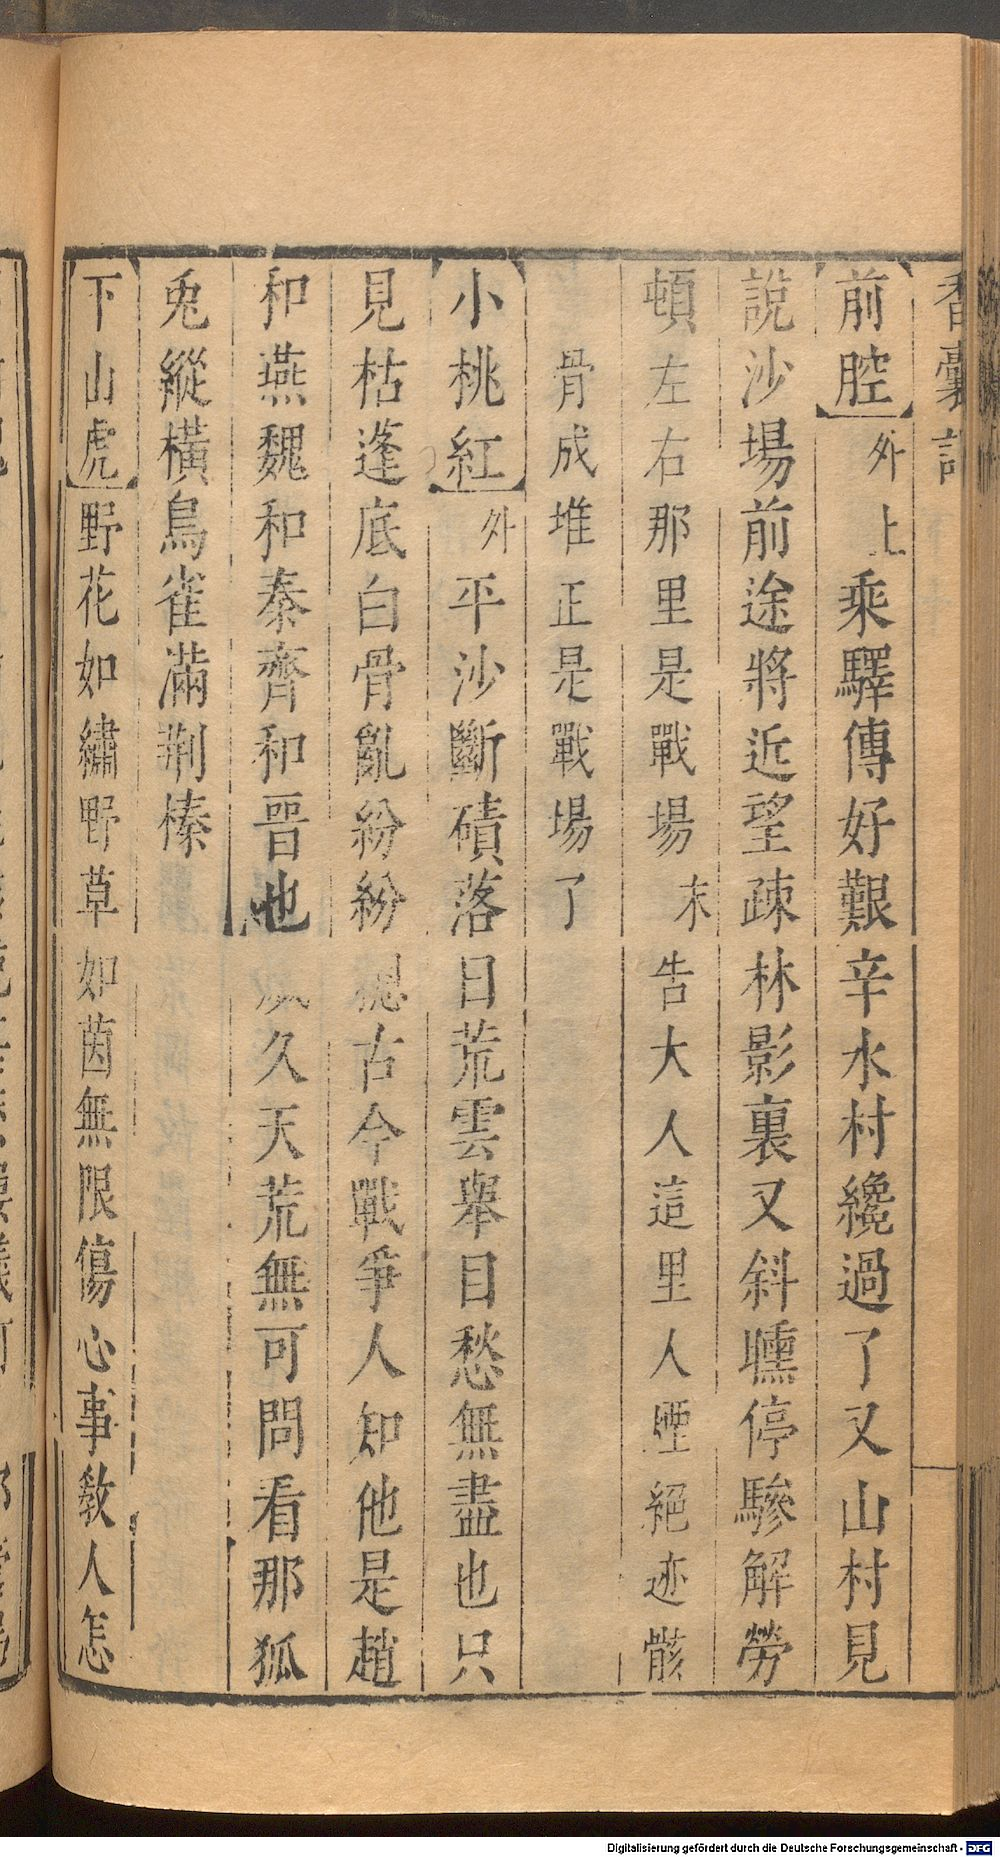 香囊記
前腔外上乘驛傳好艱辛水村纔過了又山村見
說沙場前途將近望疎林影裏又斜曛停驂解勞
頓左右那里是戰場末告大人這里人煙絕迹骸
骨成堆正是戰場了
小桃紅外平沙斷磧落日荒雲舉目愁無盡也只
見枯蓬底白骨亂紛紛總古今戰爭人知他是趙
和燕魏和秦齊和晉也久天荒無可問看那狐
兎縱橫鳥雀滿荆榛
下山虎野花如繡野草如茵無限傷心事教人怎
Digitalisierung gefördert durch die Deutsche Forschungsgemeinschaft - DFG